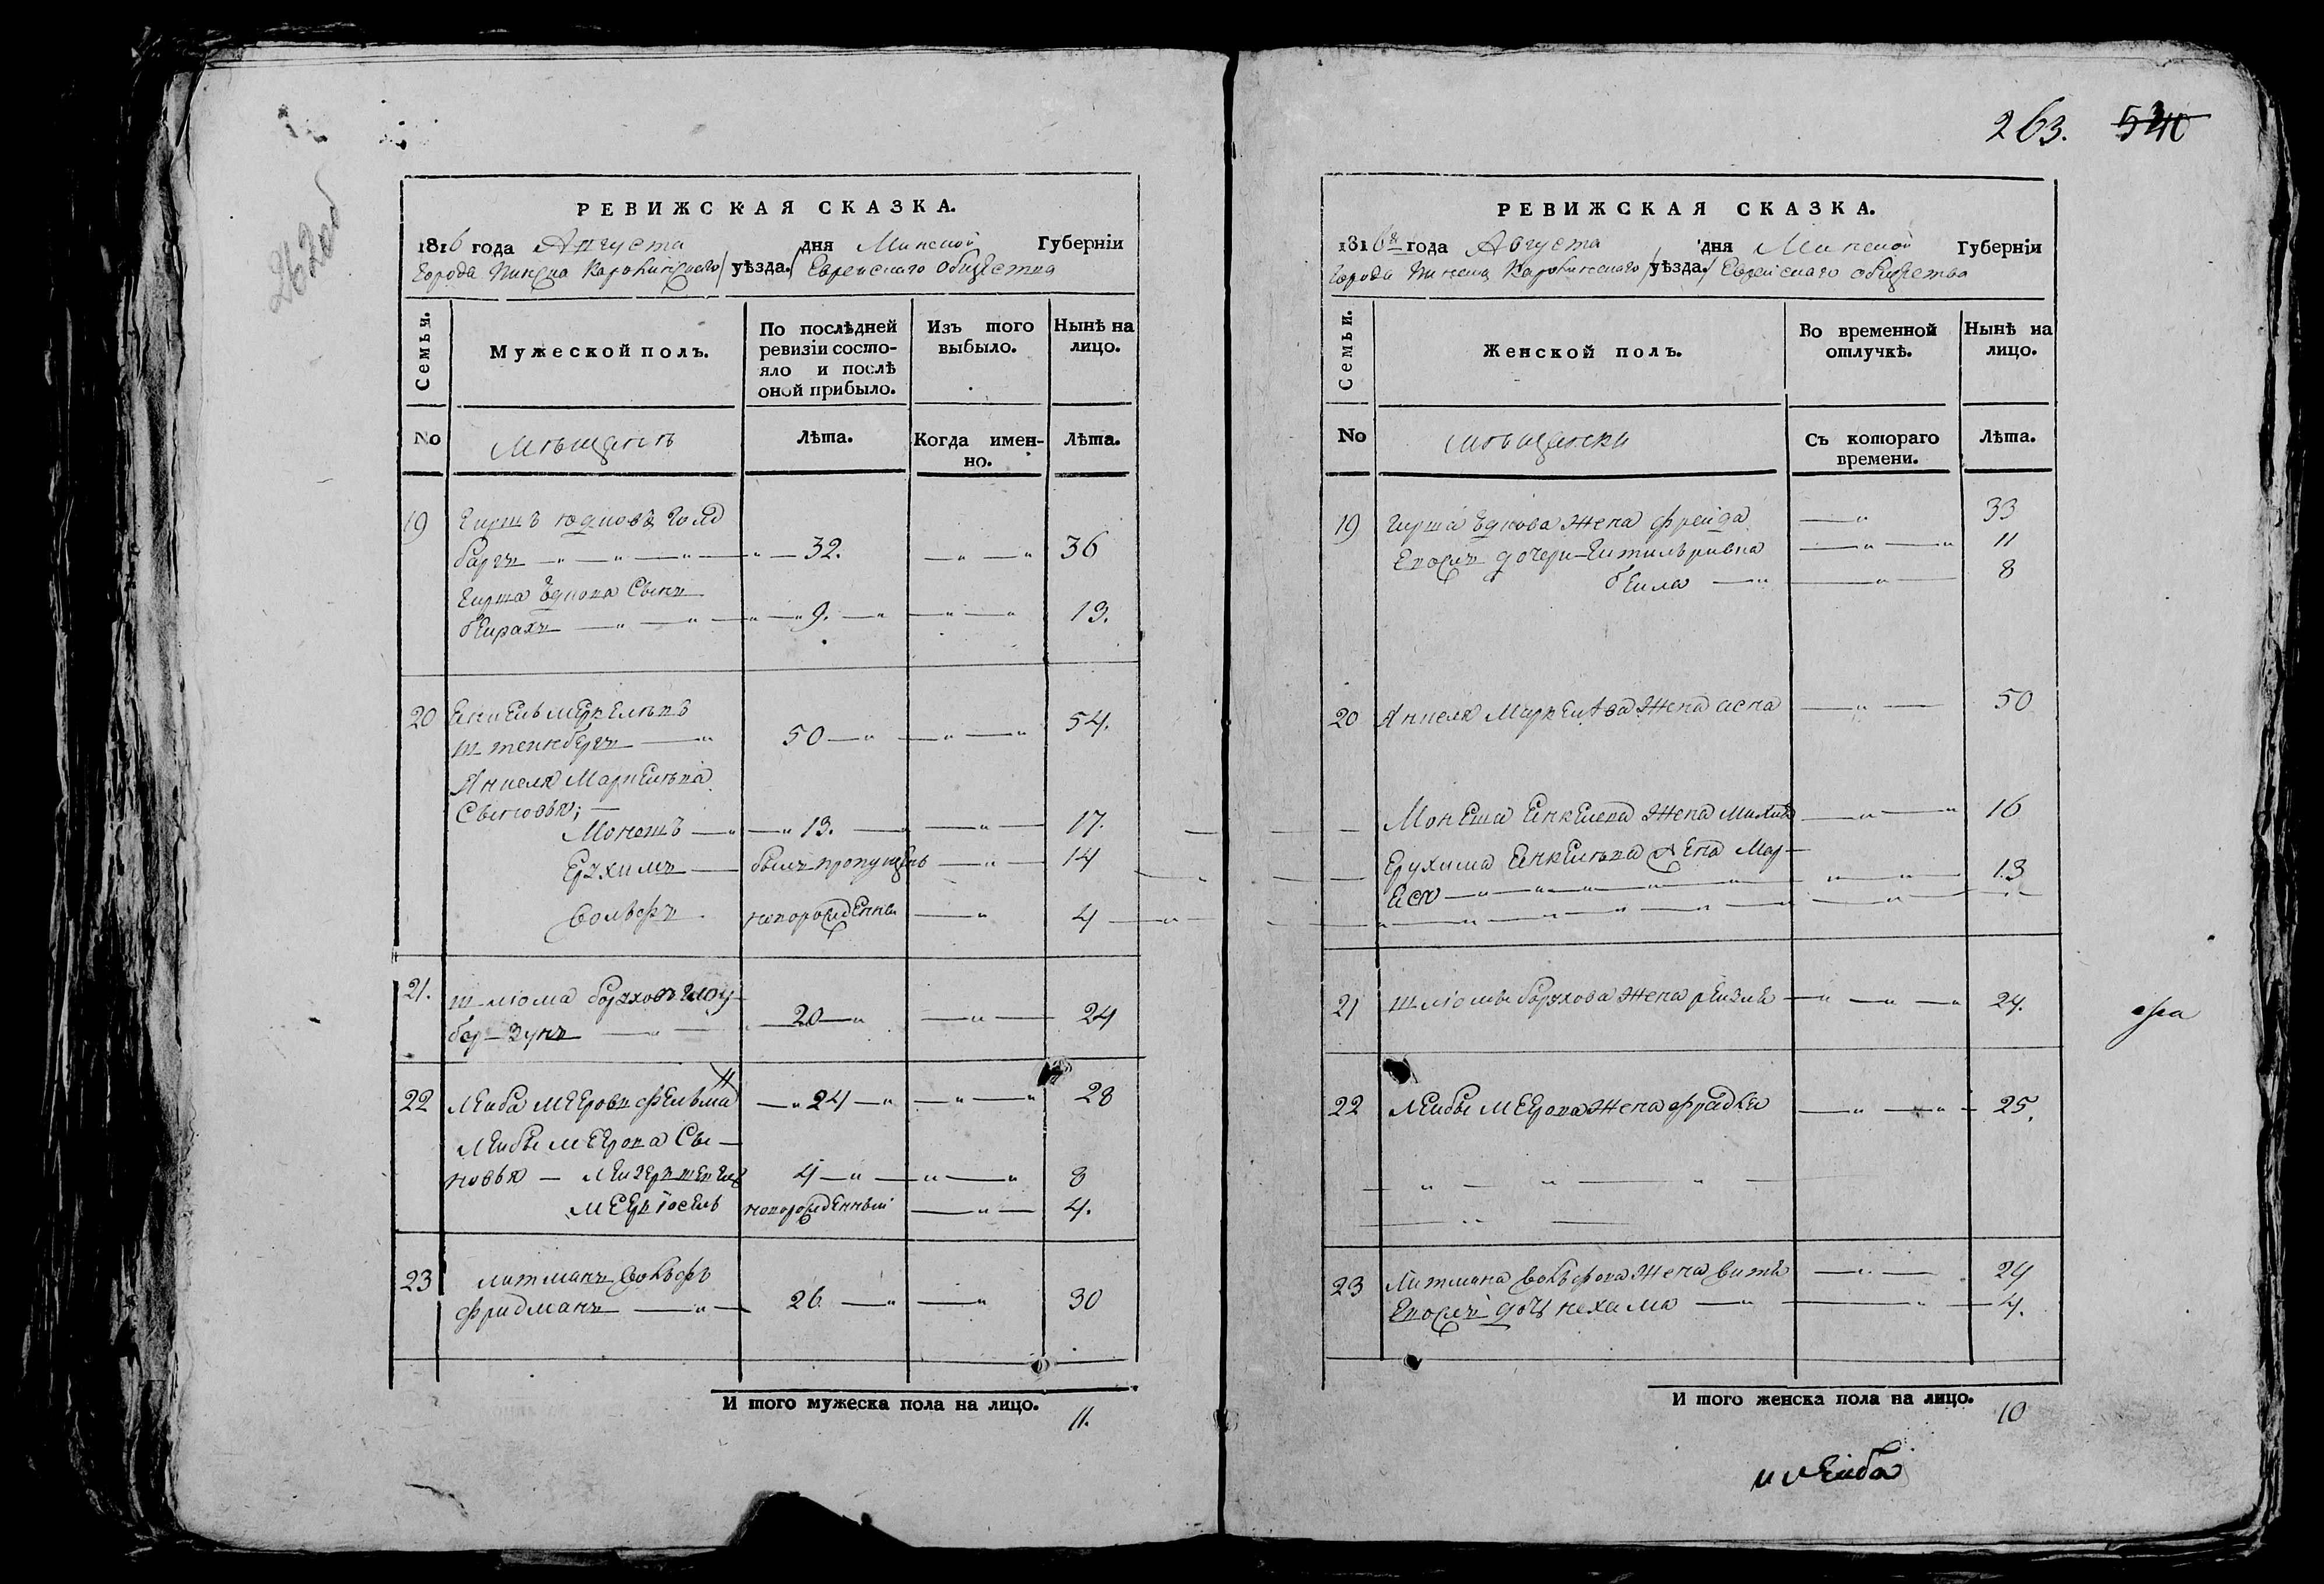 263. 540
РЕВИЖСКАЯ СКАЗКА.
1816 года Августа дня Минской Губерніи
Города Пинска Каролинскаго / уѣзда. / Еврейскаго общества
Семьи.
Мужеской полъ.
По послѣдней ревизіи состо-
яло и послѣ
оной прибыло.
Изъ того
выбыло.
Нынѣ на
лицо.
No
Мѣщанъ
Лѣта.
Когда имен-
но.
Лѣта.
19 Гиршъ Юдковъ Голд
баргъ 32. 36
Гирша Юдкова Сынъ
беирахъ 9. 13.
20 Енкель Меркелевъ
штенбергъ 50 54.
Анкеля Маркелева
Сыновья;
Монешъ 13. 17.
Ерухимъ былъ пропущенъ 14
Волфъ новорожденный 4
21. Шліома борухов
20 24
22 Леиба Мееровъ Фельма 24 28
Леибы Меерова Сы-
новья 4 8
Мееръ іосель новорожденный 4.
23 литманъ Вольфъ
фридманъ 26 30
И того мужеска пола на лицо.
11.
РЕВИЖСКАЯ СКАЗКА.
1816 года Августа дня Минской Губерніи
Города Пинска Каролинскаго / уѣзда. / Еврейскаго общества
Семьи.
Женской полъ.
Во временной
отлучкѣ.
Нынѣ на
лицо.
No
мѣщанки
Съ котораго
времени.
Лѣта.
19 Гирша Юдкова жена фрейда 33
Еяосъ дочери 11
беила 8
20 Анкеля Маркелева жена асна 50
Монеша Енкелева жена 16
Ерухима Енкелева жена Мар-
еся 13
21 шліомы борухова жена реизля 24.
22 Леибы Меерова жена фрадка 25.
23 Литмана Вольфова жена витя 24
дочь нехама 4.
И того женска пола на лицо.
10